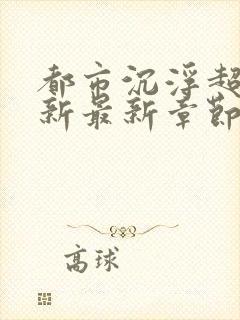 都市沉浮超
新最新章節
高球